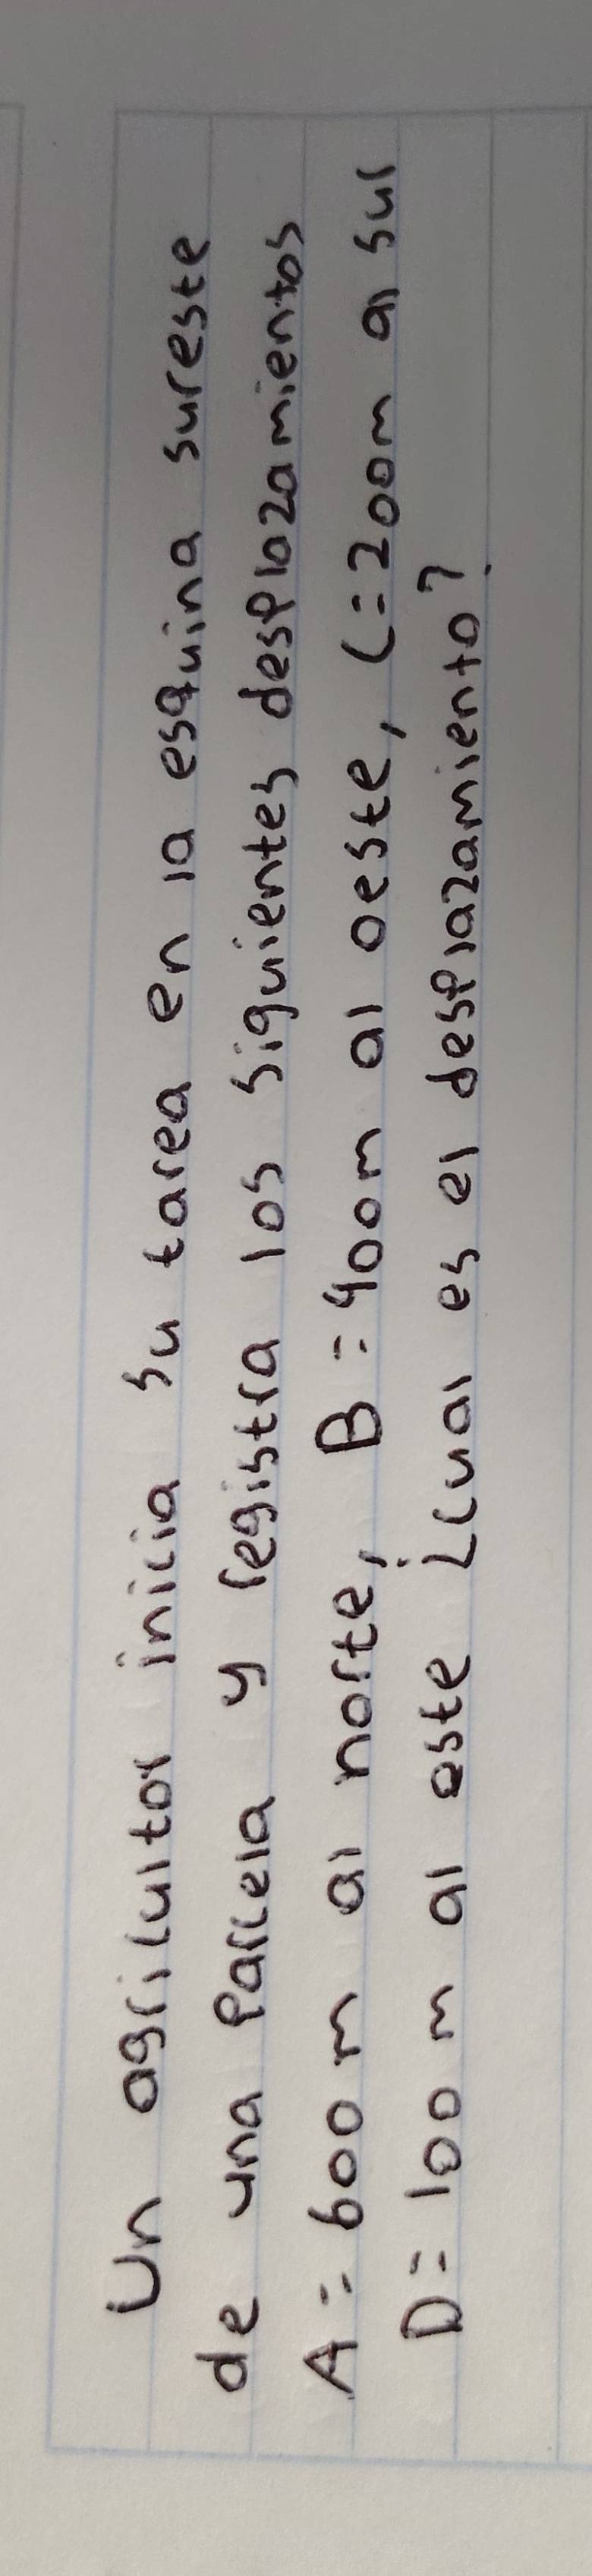 Un agricultor inicia su tarea en la esquina sureste
de una Parcela y registra los siguientes desplazamientos
A = 600 m al norte, B = 400m al oeste, C = 200m al sur
D = 100 m al este ¿cual es el desplazamiento?